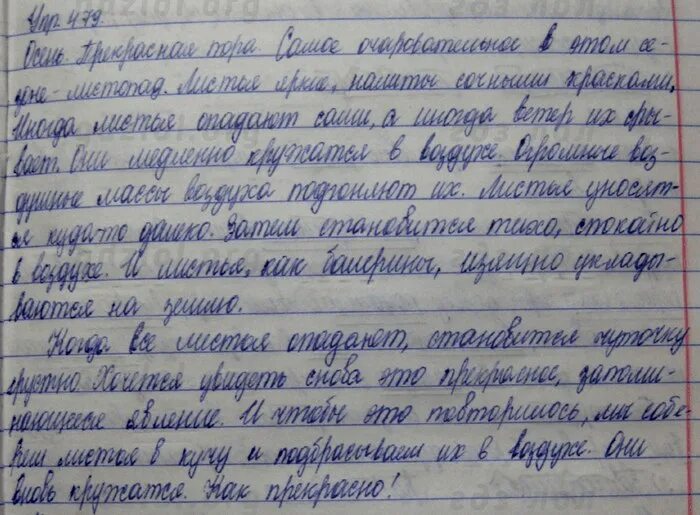 Упр. 479.
Осень. Прекрасная пора. Самое очаровательное в этом се-
зоне – листопад. Листья яркие, налиты сочными красками.
Иногда листья опадают сами, а иногда ветер их сры-
вает. Они медленно кружатся в воздухе. Огромные воз-
душные массы воздуха подгоняют их. Листья уносят-
ся куда-то далеко. Затем становится тихо, спокойно
в воздухе. И листья, как балерины, изящно уклады-
ваются на землю.
Когда все листья опадают, становится чуточку
грустно. Хочется увидеть снова это прекрасное, запоми-
нающееся явление. И чтобы это повторилось, мы собе-
рем листья в кучу и подбрасываем их в воздухе. Они
вновь кружатся. Как прекрасно!